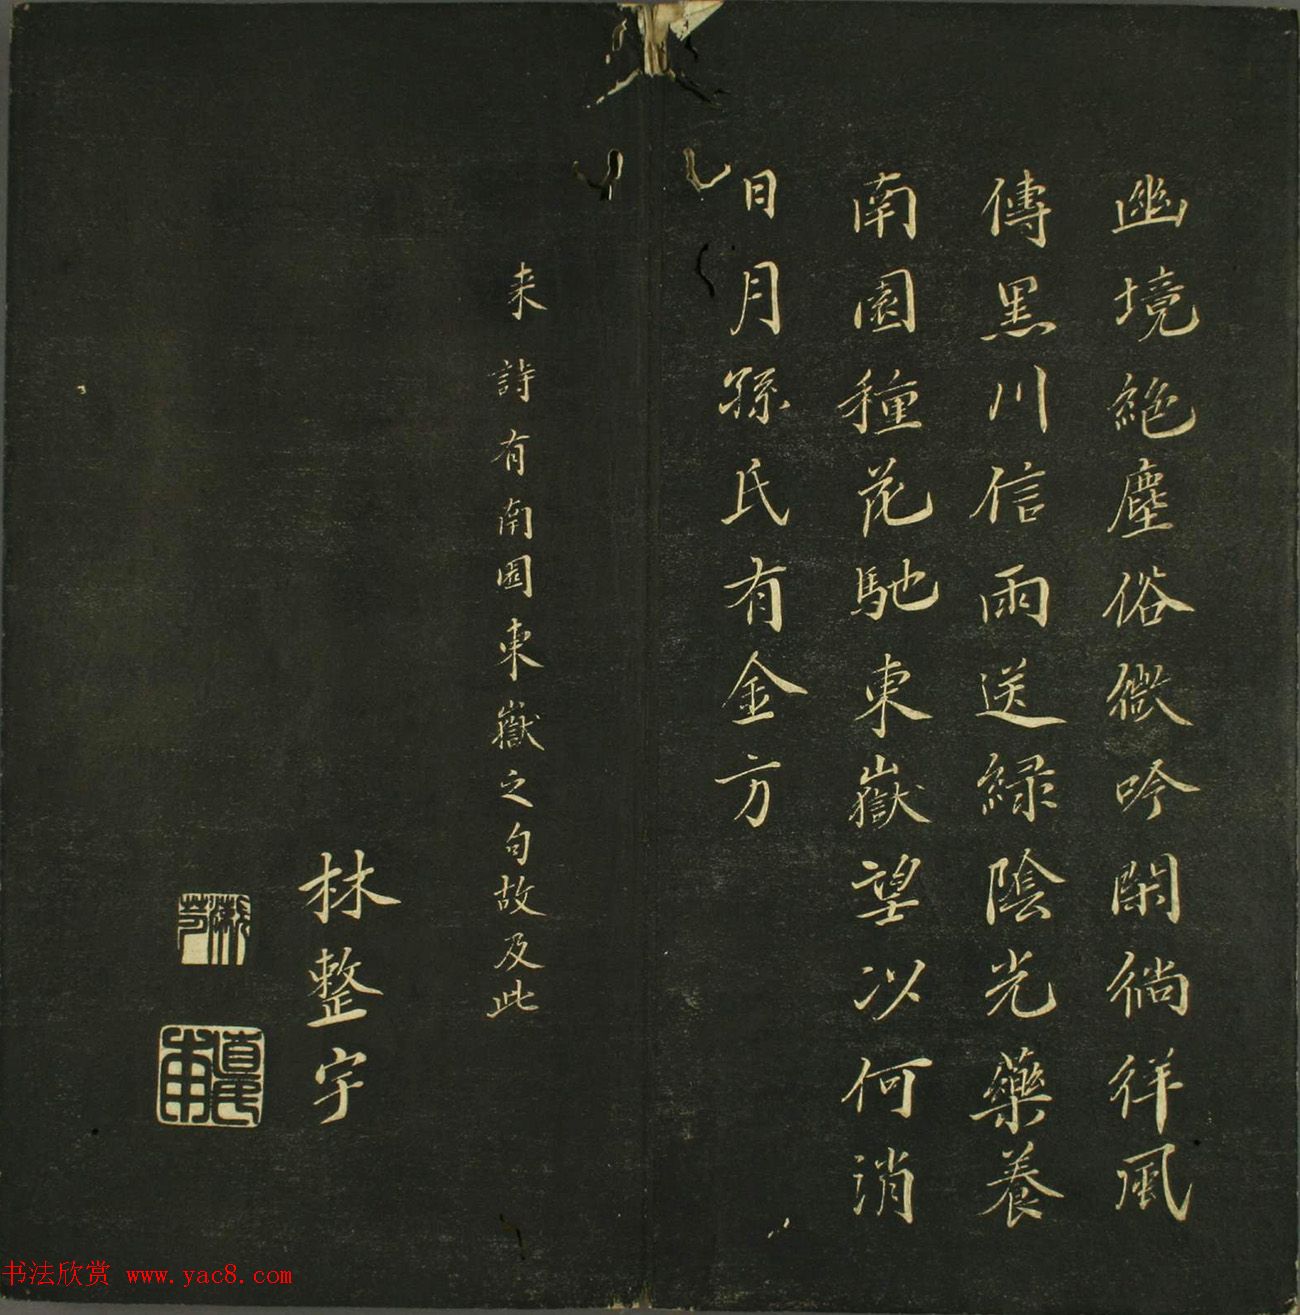 幽境絕塵俗微吟閑徜徉風
傳黑川信雨送綠陰光藥養
南園種花馳東嶽望以何消
日月孫氏有金方
来詩有南園東嶽之句故及此
林整宇
直民
甫
书法欣赏 www.yac8.com